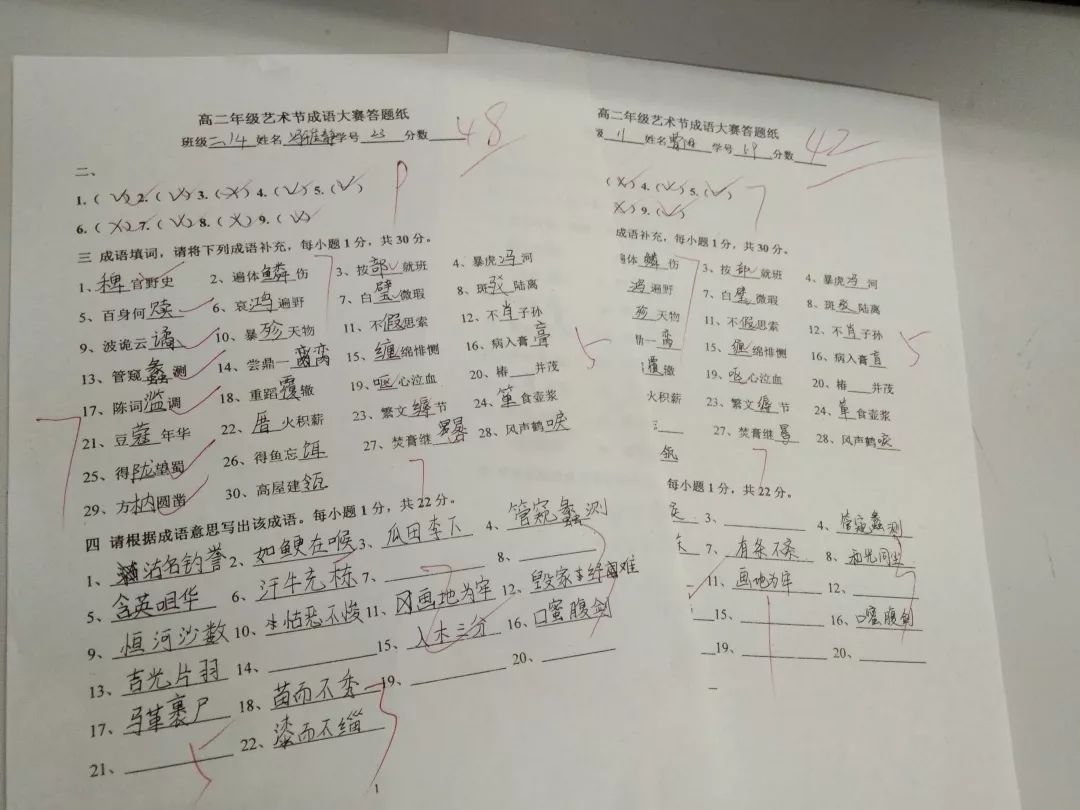 高二年级艺术节成语大赛答题纸
班级二.14 姓名 学号23 分数 48
二、
1.(√) 2.(√) 3.(×) 4.(√) 5.(√)
6.(×) 7.(√) 8.(×) 9.(√)
三 成语填词,请将下列成语补充,每小题1分,共30分。
1、稗官野史 2、遍体鳞伤 3、按部就班 4、暴虎冯河
5、百身何赎 6、哀鸿遍野 7、白璧微瑕 8、斑驳陆离
9、波诡云谲 10、暴殄天物 11、不假思索 12、不肖子孙
13、管窥蠡测 14、尝鼎一脔 15、缠绵悱恻 16、病入膏膏
17、陈词滥调 18、重蹈覆辙 19、呕心沥血 20、椿__并茂
21、豆蔻年华 22、厝火积薪 23、繁文缛节 24、箪食壶浆
25、得陇望蜀 26、得鱼忘饵 27、焚膏继晷 28、风声鹤唳
29、方枘圆凿 30、高屋建瓴
四 请根据成语意思写出该成语。每小题1分,共22分。
1、沽名钓誉 2、如鲠在喉 3、瓜田李下 4、管窥蠡测
5、含英咀华 6、汗牛充栋 7、 8、
9、恒河沙数 10、怙恶不悛 11、画地为牢 12、毁家纾难
13、吉光片羽 14、 15、入木三分 16、口蜜腹剑
17、马革裹尸 18、苗而不秀 19、 20、
21、 22、涅而不缁
1
高二年级艺术节成语大赛答题纸
姓名 学号59 分数 42
(×) 4.(√) 5.(√) 7
×) 9.(√)
成语补充,每小题1分,共30分。
体鳞伤 3、按部就班 4、暴虎冯河
鸿遍野 7、白璧微瑕 8、斑驳陆离
殄天物 11、不假思索 12、不肖子孙 5
一脔 15、缠绵悱恻 16、病入膏肓
覆辙 19、呕心沥血 20、椿__并茂
火积薪 23、繁文缛节 24、箪食壶浆
27、焚膏继晷 28、风声鹤唳
瓴
每小题1分,共22分。
3、 4、管窥蠡测
7、有条不紊 8、和光同尘
11、画地为牢 12、
15、 16、口蜜腹剑
19、 20、